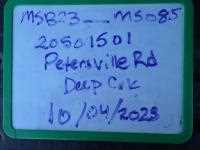 MSB23__MS085
20501501
Petersville Rd
Deep Crk
10/04/2023